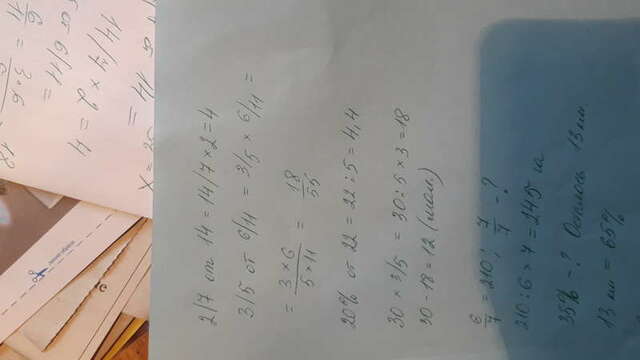 2/7 от 14 = 14/7 × 2 = 4
3/5 от 6/11 = 3/5 × 6/11 =
= 3 × 6 / 5 × 11 = 18/55
20% от 22 = 22 : 5 = 4,4
30 × 3/5 = 30 : 5 × 3 = 18
30 - 18 = 12 (мал.)
6/7 = 210; 7/7 - ?
210 : 6 × 7 = 245 га
35% - ? Осталось 13 км.
13 км = 65%
14/7 × 2 = 4
от 6/11 =